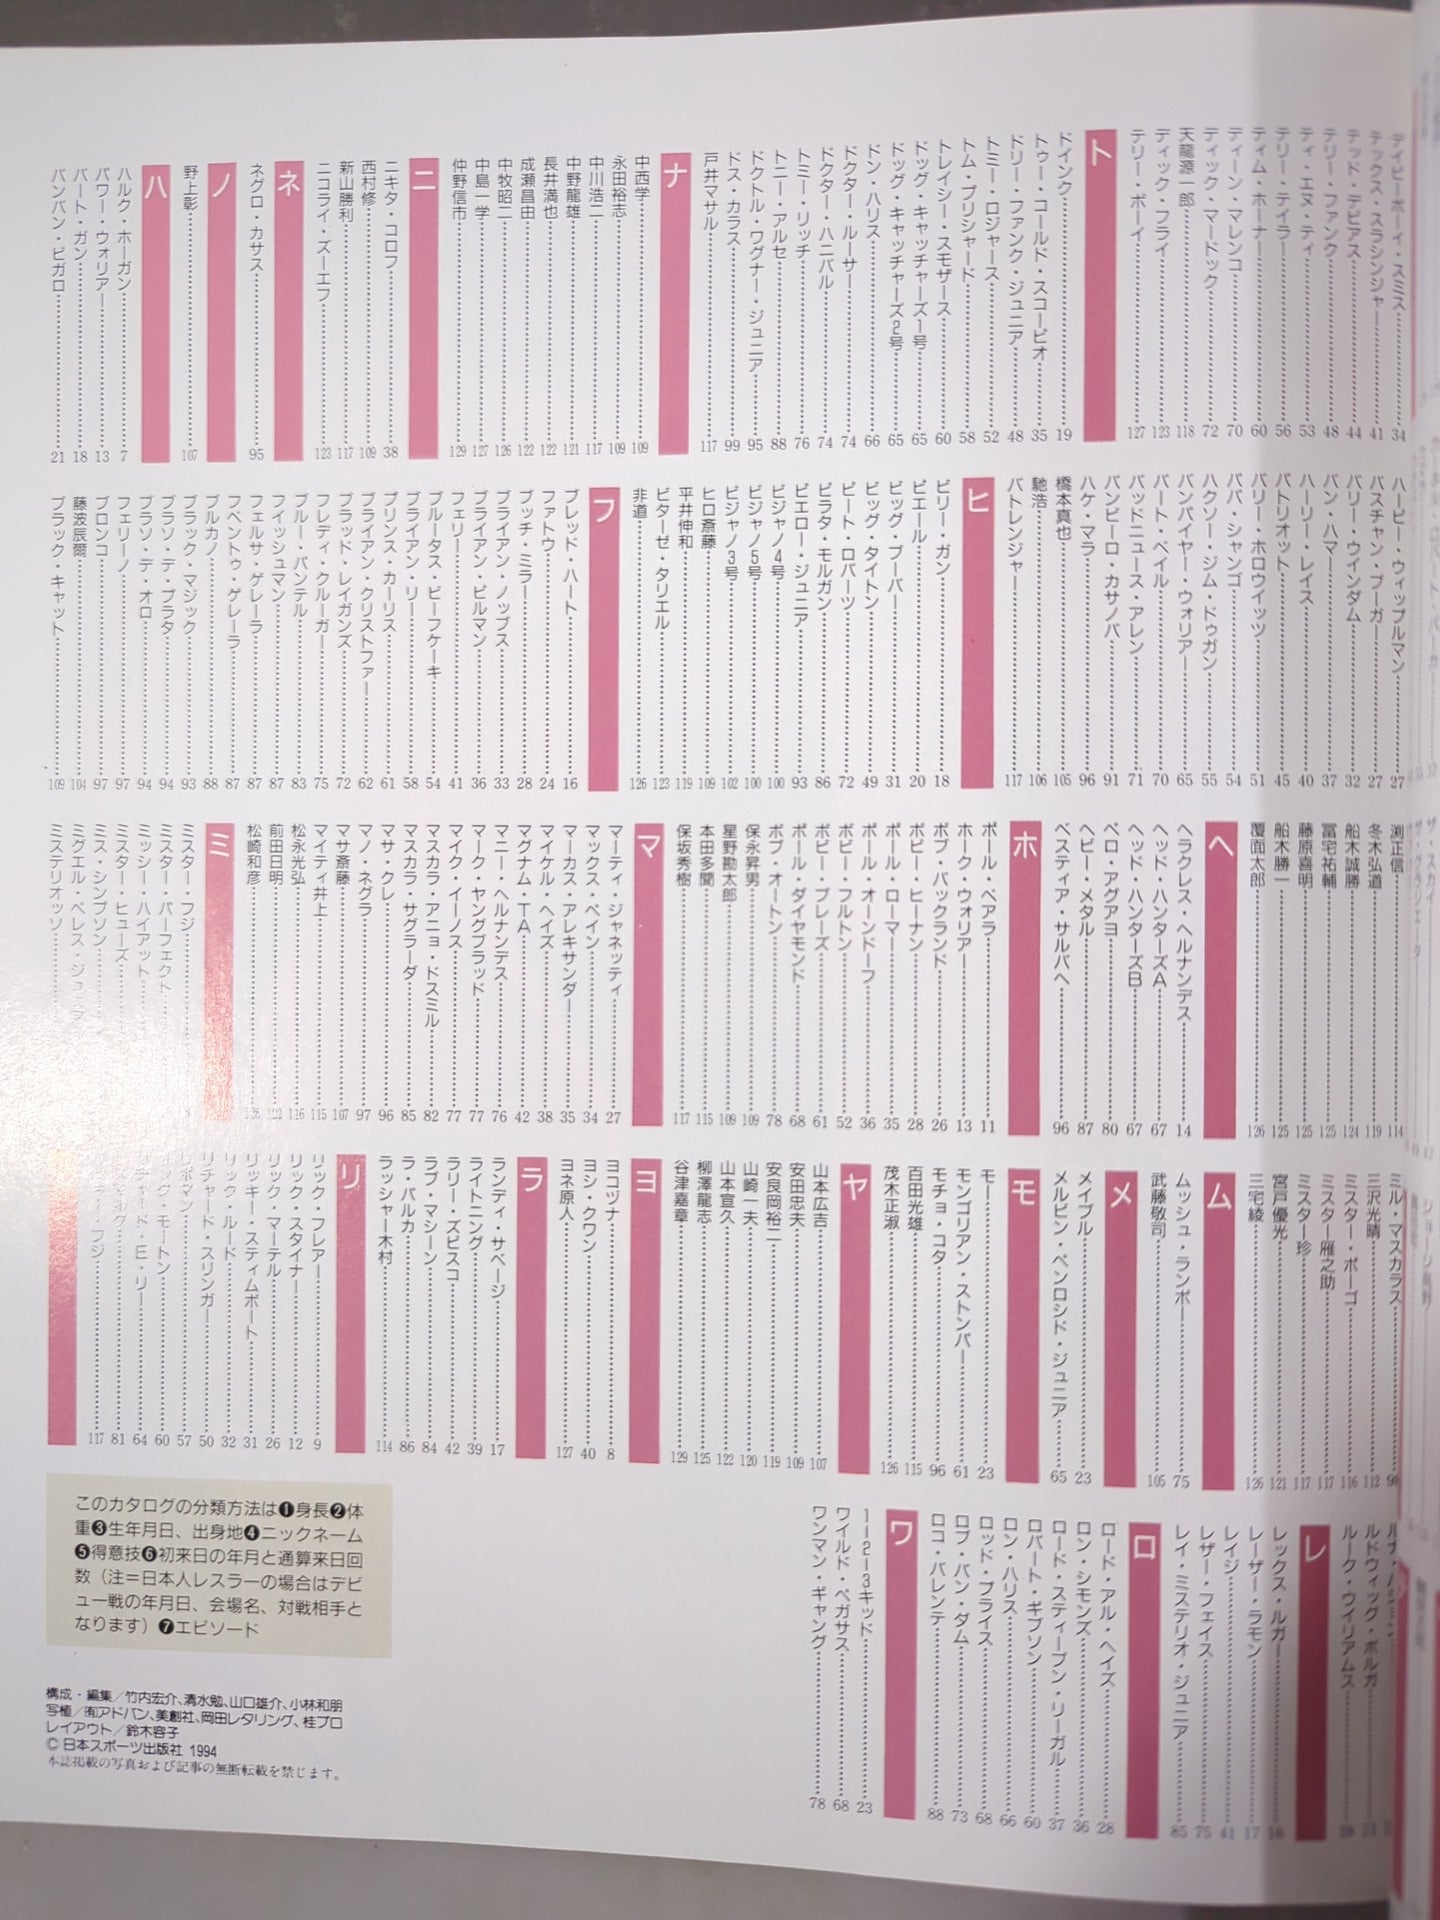 デイビーボーイ・スミス 34
テックス・スラシンジャー 41
テッド・デビアス 44
テリー・ファンク 48
ティ・エヌ・ティ 53
テリー・テイラー 56
ティム・ホナー 60
ディーン・マレンコ 70
ディック・マードック 72
天龍源一郎 118
ディック・フライ 123
テリー・ボーイ 127
ト
ドインク 19
トゥー・コールド・スコーピオ 35
ドリー・ファンク・ジュニア 48
トミー・ロジャース 52
トム・プリシャード 58
トレイシー・スモザース 60
ドッグ・キャッチャーズ1号 65
ドッグ・キャッチャーズ2号 65
ドン・ハリス 66
ドクター・ルーサー 74
ドクター・ハニバル 74
トミー・リッチ 76
トニー・アルセ 88
ドクトル・ワグナー・ジュニア 95
ドス・カラス 99
戸井マサル 117
ナ
中西学 109
永田裕志 109
中川浩二 117
中野龍雄 121
長井満也 122
成瀬昌由 122
中牧昭二 126
中島一学 127
仲野信市 129
ニ
ニキタ・コロフ 38
西村修 109
新山勝利 117
ニコライ・ズーエフ 123
ネ
ネグロ・カサス 95
ノ
野上彰 107
ハ
ハルク・ホーガン 7
パワー・ウォリアー 13
バート・ガン 18
バンバン・ビガロ 21
ハービー・ウィップルマン 27
バスチャン・ブーガ 27
バリー・ウインダム 32
バン・ハマー 37
ハーリー・レイス 40
パトリオット 45
バリー・ホロウイッツ 51
パパ・シャンゴ 54
ハクソー・ジム・ドゥガン 55
バンパイヤー・ウォリアー 65
バート・ベイル 70
バッドニュース・アレン 71
バンピーロ・カサノバ 91
ハケ・マラ 96
橋本真也 105
馳浩 106
バトレンジャー 117
ヒ
ビリー・ガン 18
ピエール 20
ビッグ・ブーバー 31
ビッグ・タイトン 49
ピート・ロバーツ 72
ピラタ・モルガン 86
ピエロー・ジュニア 93
ビジャノ4号 100
ビジャノ5号 100
ビジャノ3号 102
ヒロ斎藤 109
平井伸和 119
ビターゼ・タリエル 123
非道 126
フ
ブレッド・ハート 16
ファトゥ 24
ブッチ・ミラー 28
ブライアン・ノッブス 33
ブライアン・ピルマン 36
フェリー 41
ブルータス・ビーフケーキ 54
ブライアン・リー 58
プリンス・カーリス 61
ブライアン・クリストファー 62
ブラッド・レイガンズ 72
フレディ・クルーガー 75
ブルー・パンテル 83
フィッシュマン 87
フェルサ・ゲレーラ 87
フベントゥ・ゲレーラ 87
ブルカノ 88
ブラック・マジック 93
ブラソ・デ・プラタ 94
ブラソ・デ・オロ 94
フェリーノ 97
ブロンコ 97
藤波辰爾 104
ブラック・キャット 109
渕正信 114
冬木弘道 119
船木誠勝 124
冨宅祐輔 125
藤原喜明 125
船木勝一 125
覆面太郎 126
ヘ
ヘラクレス・ヘルナンデス 14
ヘッド・ハンターズA 67
ヘッド・ハンターズB 67
ペロ・アグアヨ 80
ヘビー・メタル 87
ベスティア・サルバヘ 96
ホ
ポール・ベアラ 11
ホーク・ウォリアー 13
ボブ・バックランド 26
ボビー・ヒーナン 28
ポール・ローマ 35
ポール・オーンドーフ 36
ボビー・フルトン 52
ボビー・ブレーズ 61
ポール・ダイヤモンド 68
ボブ・オートン 78
保永昇男 109
星野勘太郎 109
本田多聞 115
保坂秀樹 117
マ
マーティ・ジャネッティ 27
マックス・ペイン 34
マーカス・アレキサンダー 35
マイケル・ヘイズ 38
マグナム・TA 42
マニー・ヘルナンデス 76
マーク・ヤングブラッド 77
マイク・イーノス 77
マスカラ・アニョ・ドスミル 82
マスカラ・サグラーダ 85
マサ・クレ 96
マノ・ネグラ 97
マサ斎藤 107
マイティ井上 115
松永光弘 116
前田日明 122
松崎和彦 128
ミ
ミスター・フジ
ミスター・パーフェクト
ミッシー・ハイアット
ミスター・ヒューズ
ミス・シンプソン
ミグエル・ペレス・ジュニア
ミステリオッソ
ミル・マスカラス 99
三沢光晴 112
ミスター・ポーゴ 116
ミスター雁之助 117
ミスター珍 117
宮戸優光 121
三宅綾 126
ム
ムッシュ・ランボー 75
武藤敬司 105
メ
メイブル 23
メルビン・ペンロシド・ジュニア 65
モ
モー 23
モンゴリアン・ストンパー 61
モチョ・コタ 96
百田光雄 115
茂木正淑 126
ヤ
山本広吉 107
安田忠夫 109
安良岡裕二 119
山崎一夫 120
山本宣久 122
柳澤龍志 125
谷津嘉章 129
ヨ
ヨコヅナ 8
ヨシ・クワン 40
ヨネ原人 127
ラ
ランディ・サベージ 17
ライトニング 39
ラリー・ズビスコ 42
ラブ・マシーン 84
ラ・パルカ 86
ラッシャー木村 114
リ
リック・フレアー 9
リック・スタイナー 12
リック・マーテル 26
リッキー・スティムボート 31
リック・ルード 32
リチャード・スリンガー 50
57
60
64
81
117
ルドウィッグ・ボルガ
ルーク・ウイリアムス
レ
レックス・ルガー 16
レーザー・ラモン 17
レイジ 41
レザー・フェイス 75
レイ・ミステリオ・ジュニア 85
ロ
ロード・アル・ヘイズ 28
ロン・シモンズ 36
ロード・スティーブン・リーガル 37
ロバート・ギブソン 60
ロン・ハリス 66
ロッド・プライス 68
ロブ・バン・ダム 73
ロコ・バレンテ 88
ワ
1-2-3キッド 23
ワイルド・ペガサス 68
ワンマン・ギャング 78
このカタログの分類方法は❶身長❷体
重❸生年月日、出身地❹ニックネーム
❺得意技❻初来日の年月と通算来日回
数（注＝日本人レスラーの場合はデビ
ュー戦の年月日、会場名、対戦相手と
なります）❼エピソード
構成・編集／竹内宏介、清水勉、山口雄介、小林和朋
写植／㈲アドバン、美創社、岡田レタリング、桂プロ
レイアウト／鈴木容子
© 日本スポーツ出版社 1994
本誌掲載の写真および記事の無断転載を禁じます。